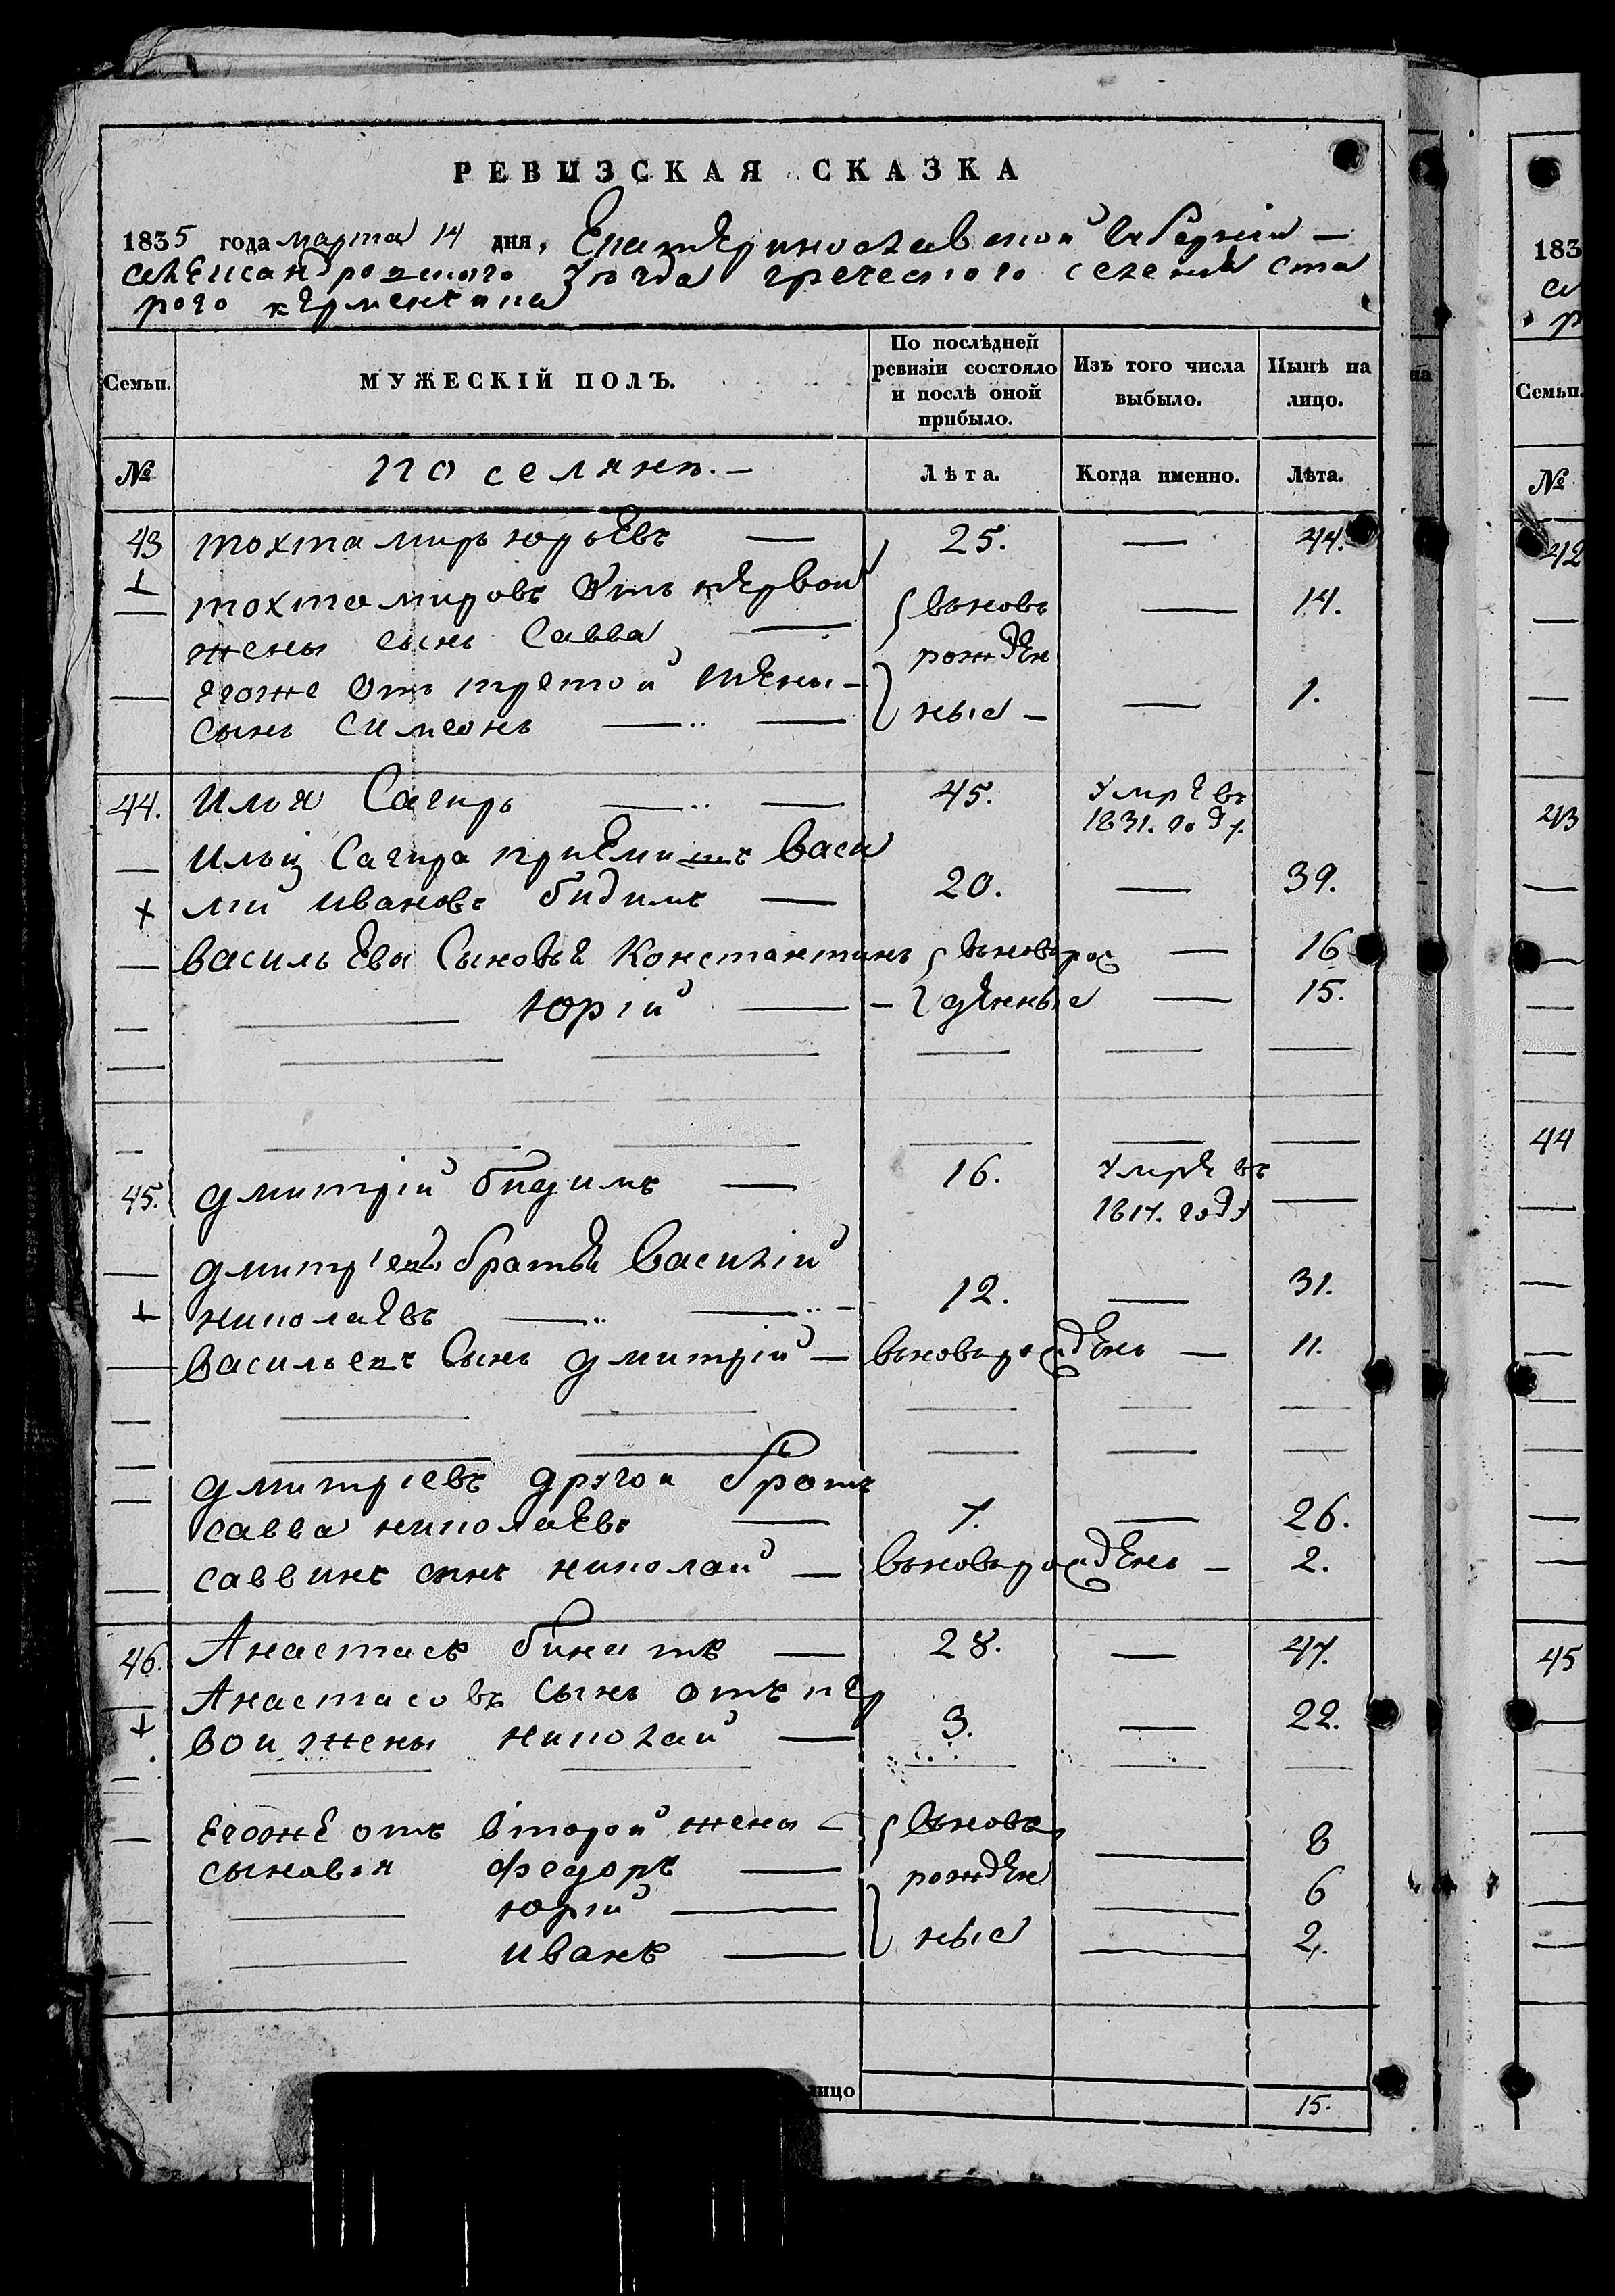 РЕВИЗСКАЯ СКАЗКА
1835 года марта 14 дня, Екатеринославской губернии —
александровского уезда греческого селения ста
рого керменчика
Семьи. МУЖЕСКІЙ ПОЛЪ. По послѣдней ревизіи состояло и послѣ оной прибыло. Изъ того числа выбыло. Нынѣ на лицо.
№ поселянъ. — Лѣта. Когда именно. Лѣта.
43 тохтамиръ юрьевъ — 25. — 44.
тохтамировъ отъ первой
жены сынъ Савва — вновь — 14.
рожден
егоже отъ третой жены —
сынъ симеонъ — ныя — 1.
44. Илья Сагиръ — 45. умре въ
1831. году.
Ильи Сагира приемишъ Васи
лій ивановъ бидимъ — 20. — 39.
васильевы Сыновья Константинъ вновьрож — 16
Юрій — денные — 15.
45. дмитрій бидимъ — 16. умре въ
1817. году —
дмитріевъ братья Василій
николаевъ — 12. — 31.
васильевъ Сынъ дмитрій — вновьрожденъ — 11.
дмитріевъ другой братъ
савва николаевъ — 7. — 26.
саввинъ сынъ николай — вновьрожденъ — 2.
46. Анастасъ бинатъ — 28. — 47.
Анастасовъ Сынъ отъ пер
вои жены николай — 3. — 22.
егоже отъ второй жены — вновь
сыновья федоръ — рожден — 8
юрій — 6
иванъ — ныя — 2.
лицо 15.
183
Семьи.
№
42
43
44
45